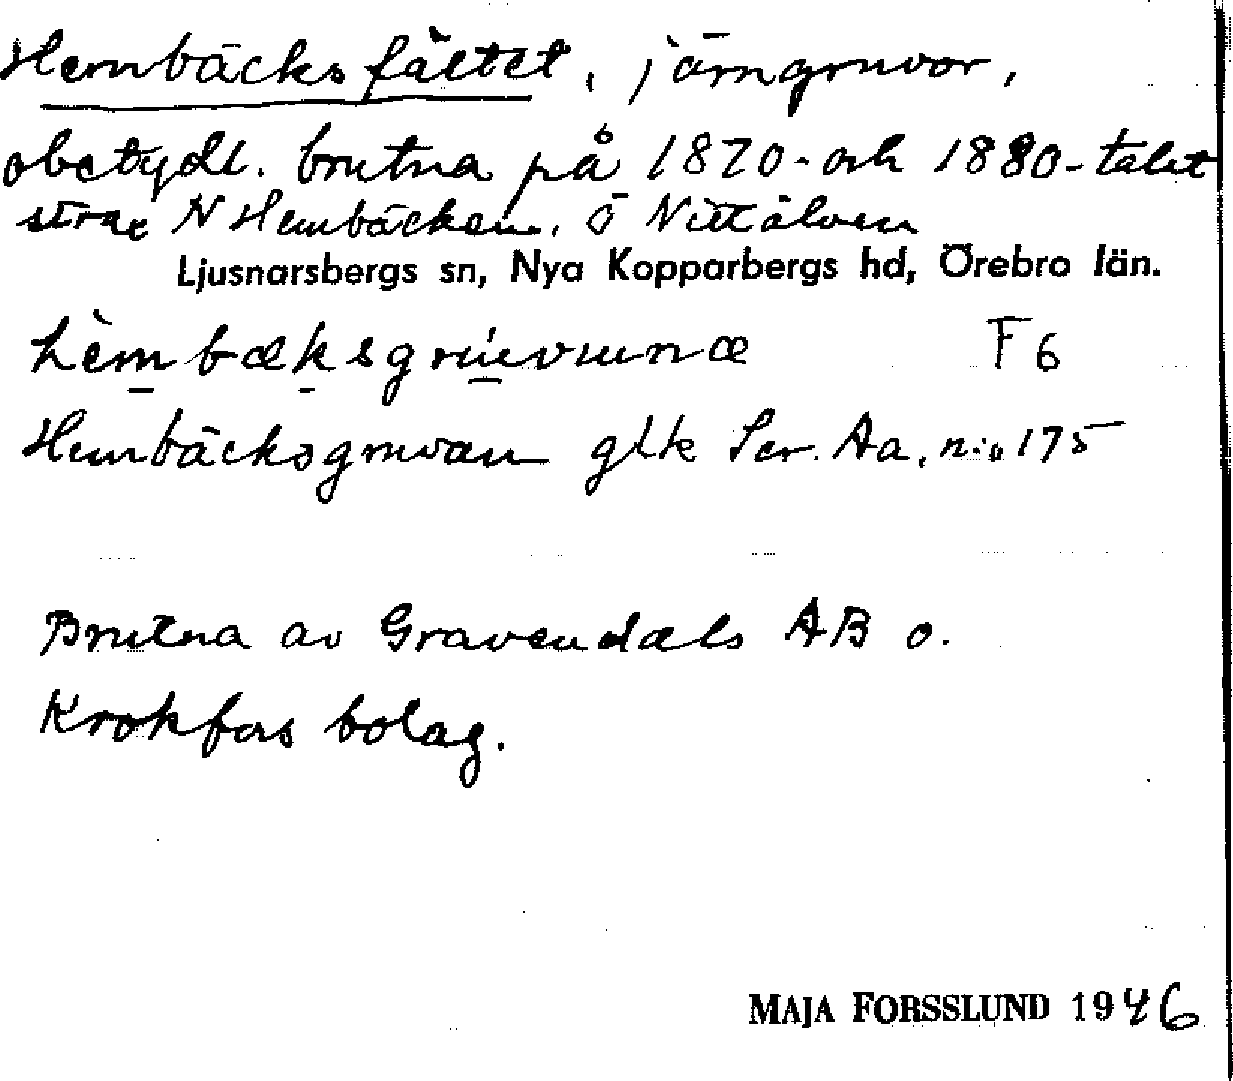 Hembäcksfältet, järngruvor,
obetydl. brutna på 1870- och 1880-talet
strax N Hembäcken, ö Nittälven
Ljusnarsbergs sn, Nya Kopparbergs hd, Örebro län.
hèmbæksgrúvunæ F 6
Hembäcksgruvan glk Ser. Aa, n:o 175
Brutna av Gravendals AB o.
Krokfors bolag.
MAJA FORSSLUND 1946